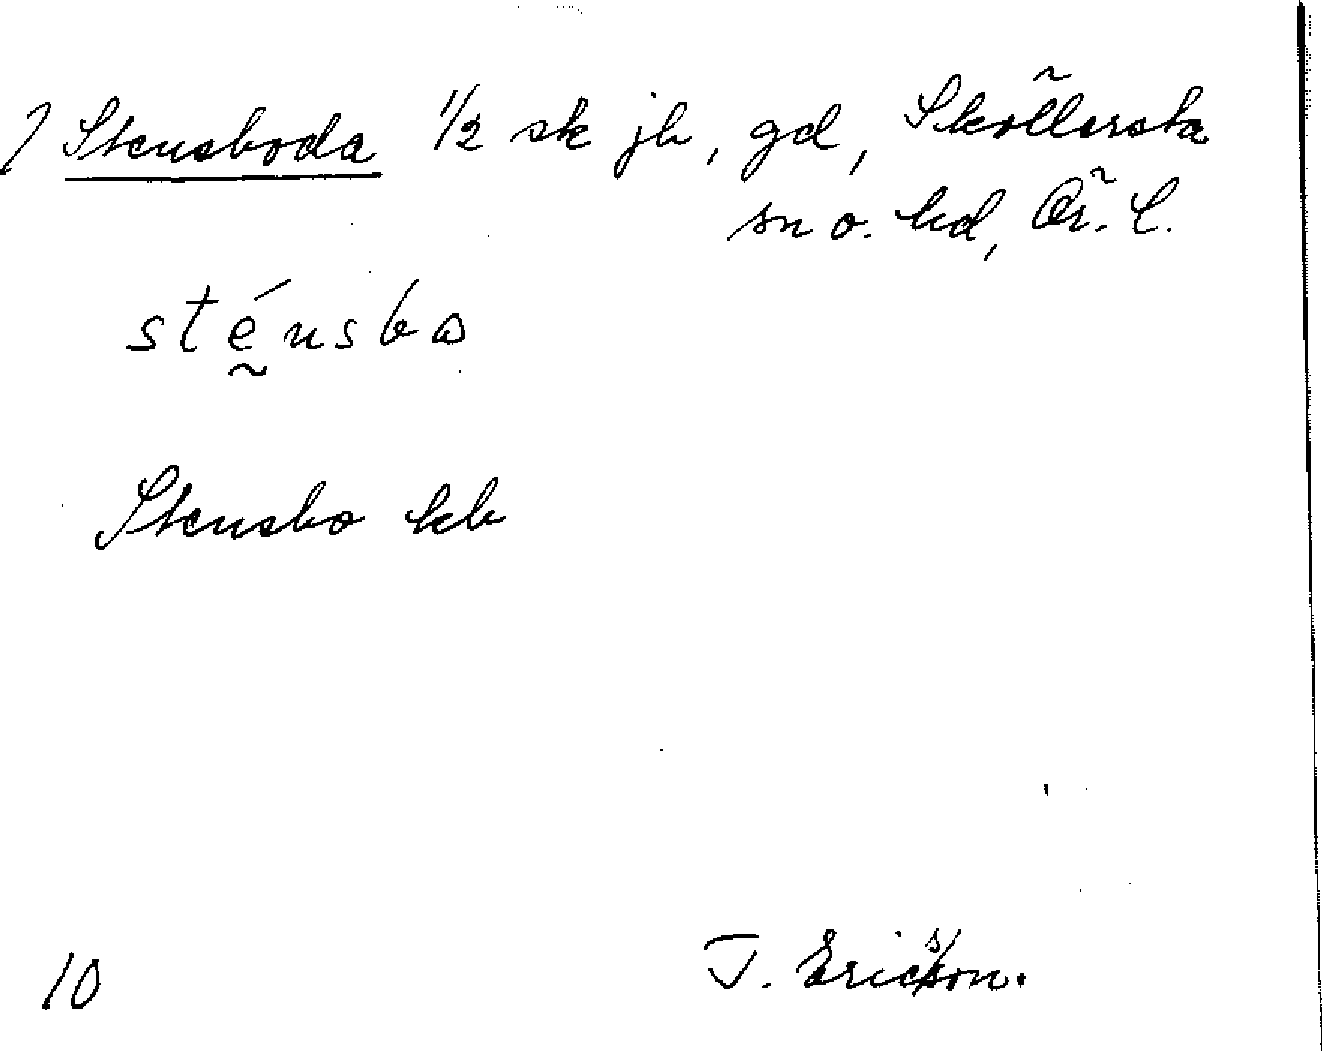 ) Stensboda 1/2 sk jb, gd, Sköllersta
sn o. hd, Ör. l.
sténsbo
Stensbo kb
10 J. Ericsson.